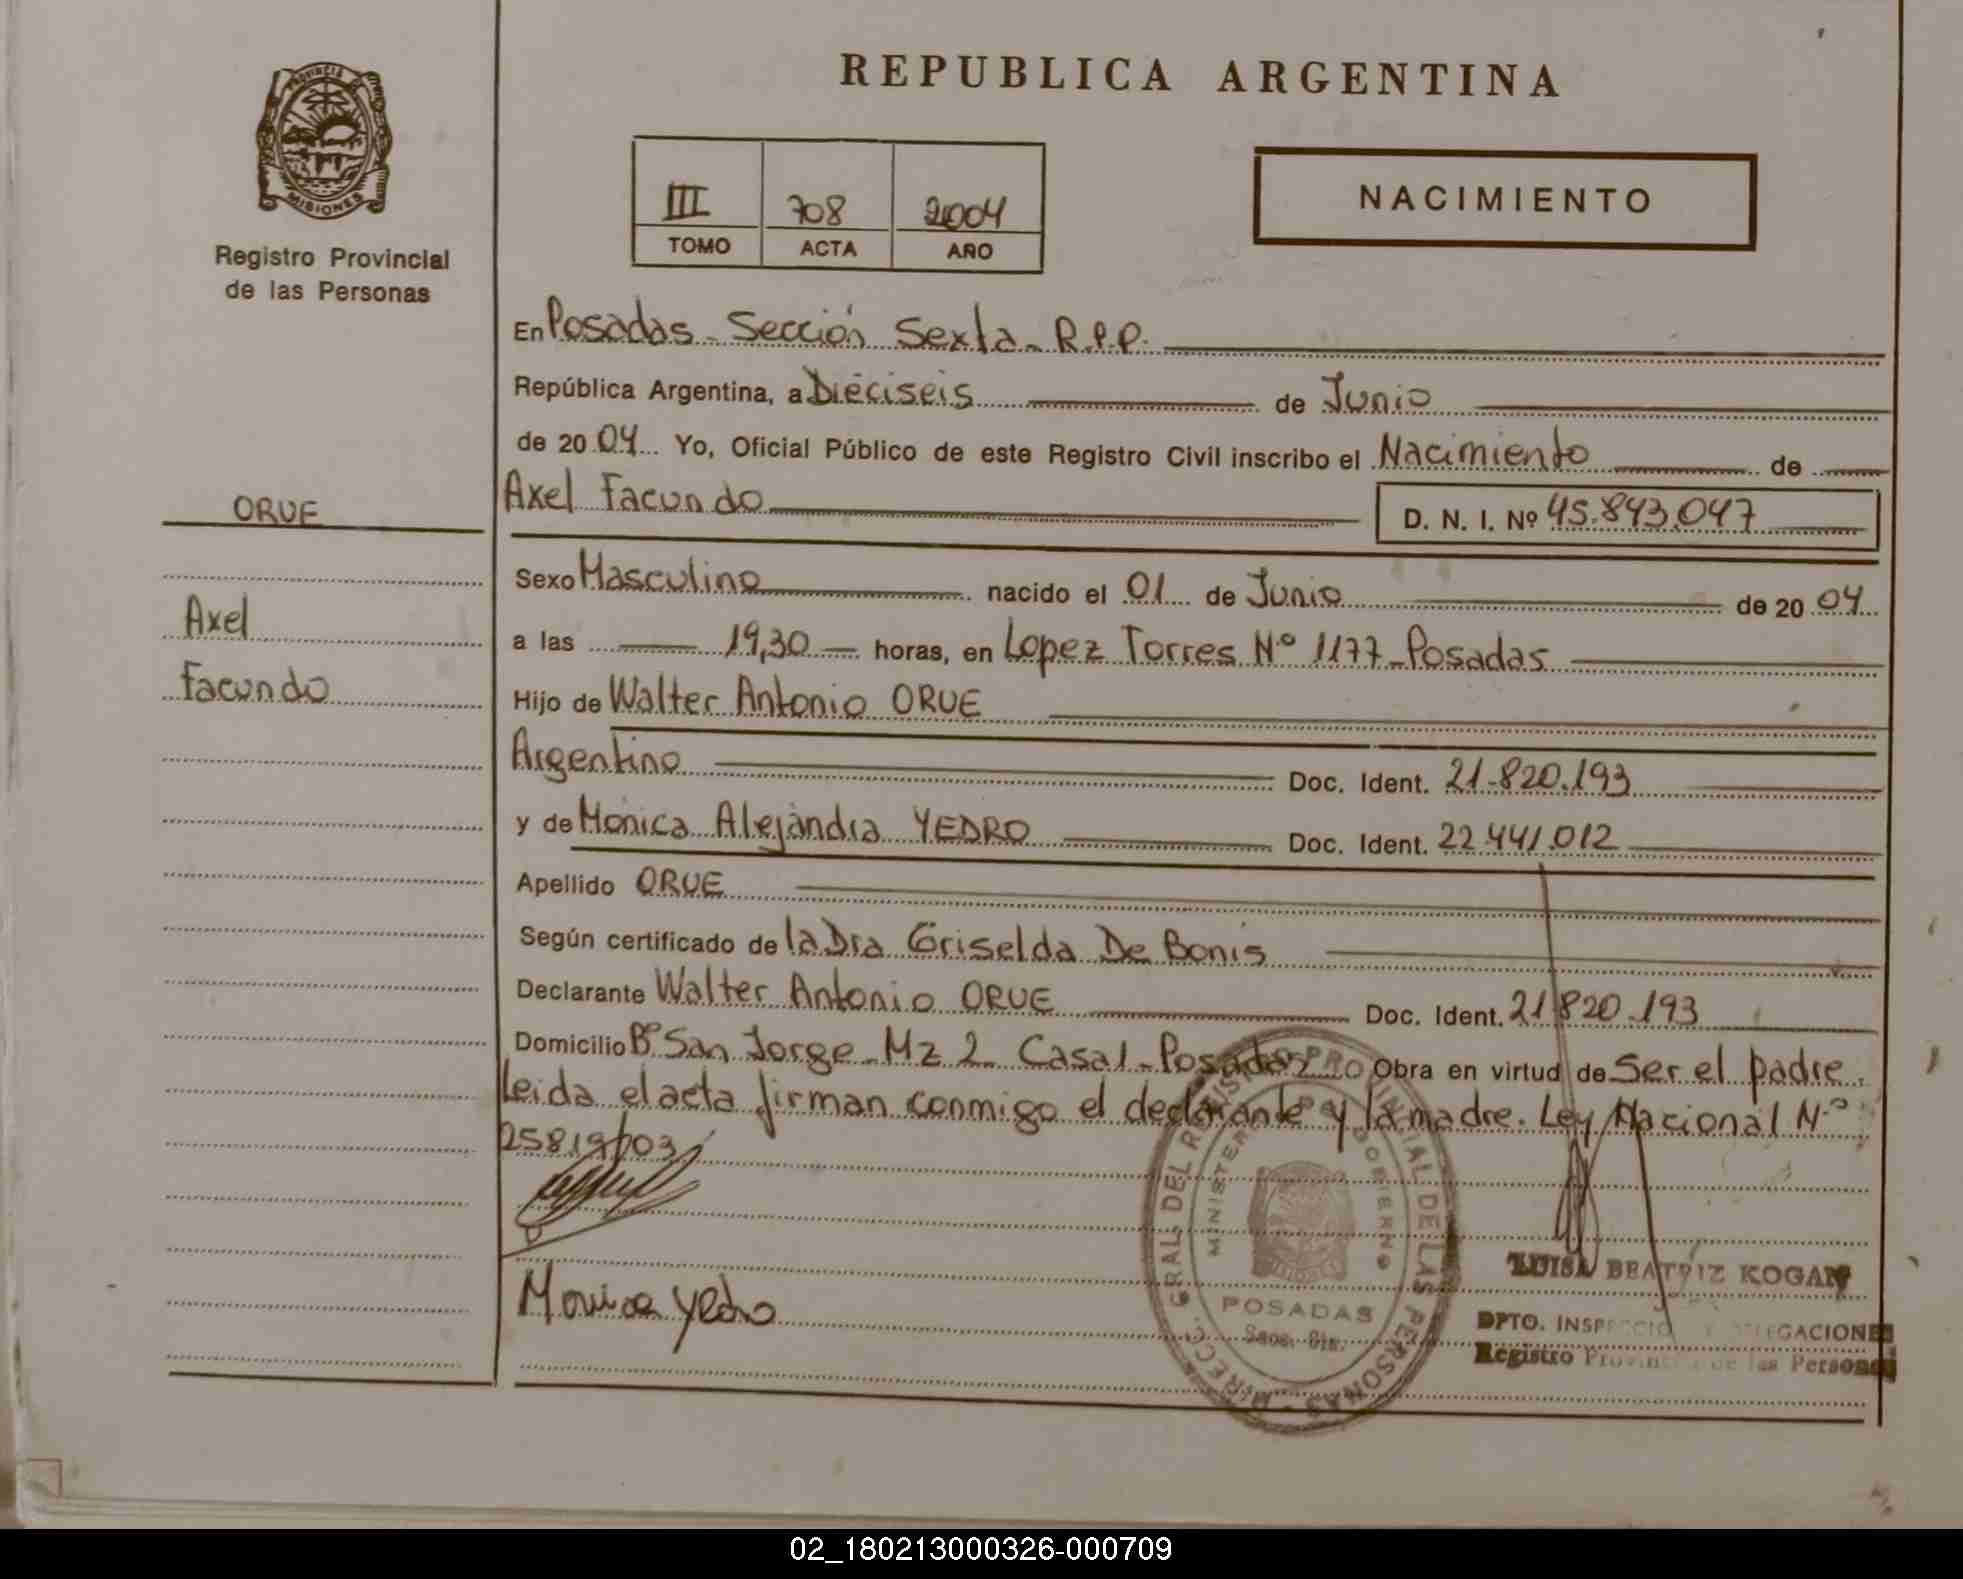 REPUBLICA ARGENTINA
PROVINCIA
MISIONES
Registro Provincial
de las Personas
III 708 2004
TOMO ACTA AÑO
NACIMIENTO
En Posadas - Sección Sexta - R.P.P.
República Argentina, a Dieciseis de Junio
de 2004 Yo, Oficial Público de este Registro Civil inscribo el Nacimiento de
Axel Facundo D. N. I. Nº 45.843.047
ORUE
Axel
Facundo
Sexo Masculino nacido el 01 de Junio de 2004
a las 19,30 horas, en Lopez Torres Nº 1177 - Posadas
Hijo de Walter Antonio ORUE
Argentino Doc. Ident. 21.820.193
y de Mónica Alejandra YEDRO Doc. Ident. 22.441.012
Apellido ORUE
Según certificado de la Dra Griselda De Bonis
Declarante Walter Antonio ORUE Doc. Ident. 21.820.193
Domicilio Bº San Jorge - Mz 2 Casa 1 - Posadas Obra en virtud de Ser el padre.
Leida el acta firman conmigo el declarante y la madre. Ley Nacional Nº
25819/03
Monica Yedro
DIRECC. GRAL. DEL REGISTRO PROVINCIAL DE LAS PERSONAS
MINISTERIO DE GOBIERNO
POSADAS
LUISA BEATRIZ KOGAN
DPTO. INSPECCION Y DELEGACIONES
Registro Provincial de las Personas
02_180213000326-000709